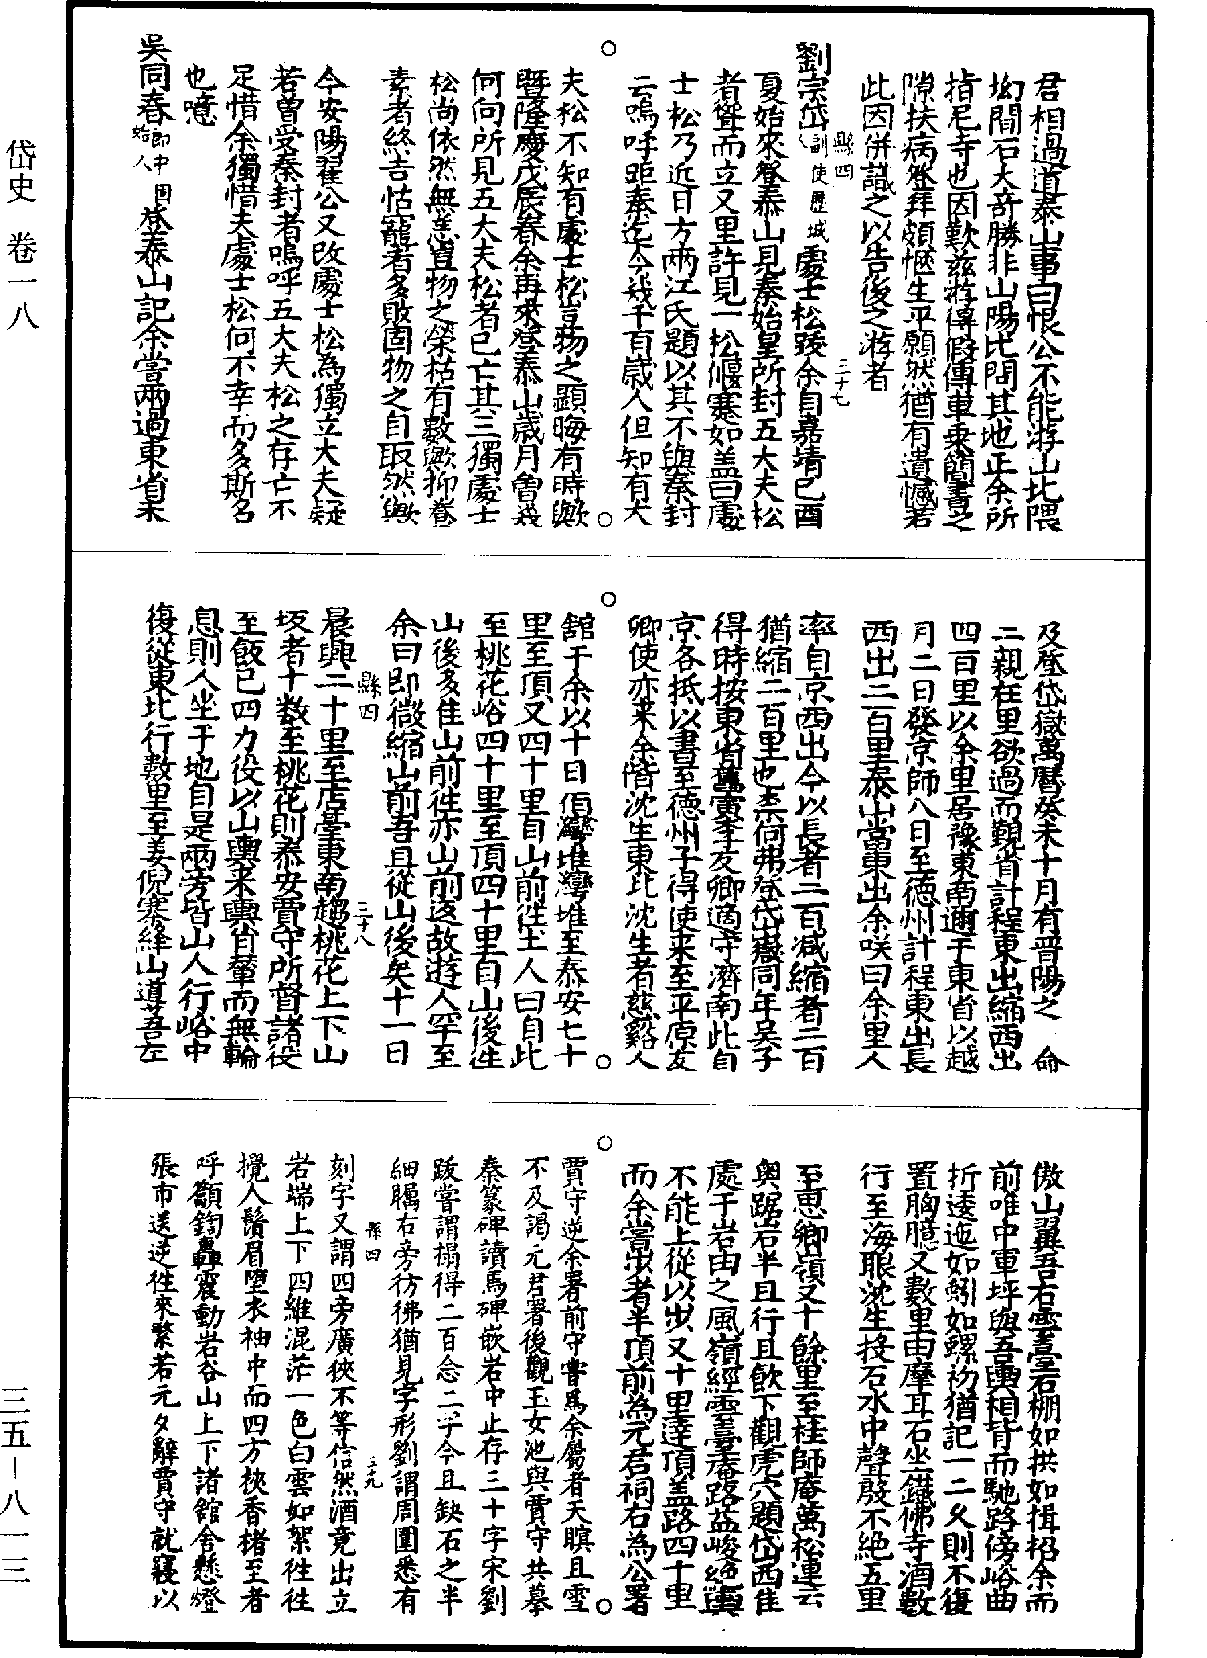 岱史 卷一八
三五－八一三
君相過道泰山事曰恨公不能游山北隈
坳間石大奇勝非山陽比問其地正余所
指尼寺也因歎茲游得假傳車乘簡書之
隙扶病登拜頗愜生平願然猶有遺憾若
此因併識之以告後之游者
縣四
三十七
劉宗岱副使歷城人處士松跋余自嘉靖己酉
夏始來登泰山見秦始皇所封五大夫松
者聳而立又里許見一松偃蹇如盖曰處
士松乃近日方兩江氏題以其不與秦封
云嗚呼距秦迄今幾千百歲人但知有大
夫松不知有處士松豈物之顯晦有時歟
暨隆慶戊辰春余再來登泰山歲月曾幾
何向所見五大夫松者已亡其三獨處士
松尚依然無恙豈物之榮枯有數歟抑養
素者終吉怙寵者多敗固物之自取然歟
今安陽翟公又改處士松為獨立大夫疑
若曾受秦封者嗚呼五大夫松之存亡不
足惜余獨惜夫處士松何不幸而多斯名
也噫
吳同春郎中固始人登泰山記余嘗兩過東省未
及登岱嶽萬曆癸未十月有晉陽之 命
二親在里欲過而覲省計程東出縮西出
四百里以余里居豫東南邇于東省以越
月二日發京師八日至德州計程東出長
西出二百里泰山當東出余咲曰余里人
率自京西出今以長者二百減縮者二百
猶縮二百里也柰何弗登岱嶽同年吳子
得時按東省舊寅李友卿適守濟南此自
京各抵以書至德州子得使來至平原友
卿使亦來余偕沈生東比沈生者慈谿人
舘于余以十日佰灣堆灣堆至泰安七十
里至頂又四十里自山前徃土人曰自此
至桃花峪四十里至頂四十里自山後徃
山後多佳山前徃亦山前返故遊人罕至
余曰即微縮山前吾且從山後矣十一日
縣四
三十八
晨興二十里至店臺東南趨桃花上下山
坂者十數至桃花則泰安賈守所督諸役
至飯已四力役以山輿来輿肖輦而無輪
息則人坐于地自是兩旁皆山人行峪中
復從東北行數里至姜倪寨絳山導吾左
傲山翼吾右雲臺石棚如拱如揖招余而
前唯中軍坪與吾輿相背而馳路傍峪曲
折逶迤如蚓如螺初猶記一二久則不復
置胸臆又數里由摩耳石坐鐵佛寺酒數
行至海眼沈生投石水中聲殷不絶五里
至思鄉嶺又十餘里至桂師庵萬松連云
輿踞岩半且行且飲下觀虎穴題岱西佳
處于岩由之風嶺經雲臺庵路益峻絶輿
不能上從以步又十里達頂盖路四十里
而余嘗步者半頂前為元君祠右為公署
賈守逆余署前守嘗為余屬者天暝且雪
不及謁元君署後觀玉女池與賈守共摹
秦篆碑讀馬碑嵌岩中止存三十字宋劉
跋嘗謂搨得二百念二字今且缺石之半
細矚右旁彷彿猶見字形劉謂周圍悉有
縣四
三九
刻字又謂四旁廣狹不等信然酒竟出立
岩端上下四維混茫一色白雲如絮徃徃
攪人鬚眉墮衣袖中而四方挾香楮至者
呼籲鍧轟震動岩谷山上下諸舘舍懸燈
張市送逆徃來繁若元夕辭賈守就寢以